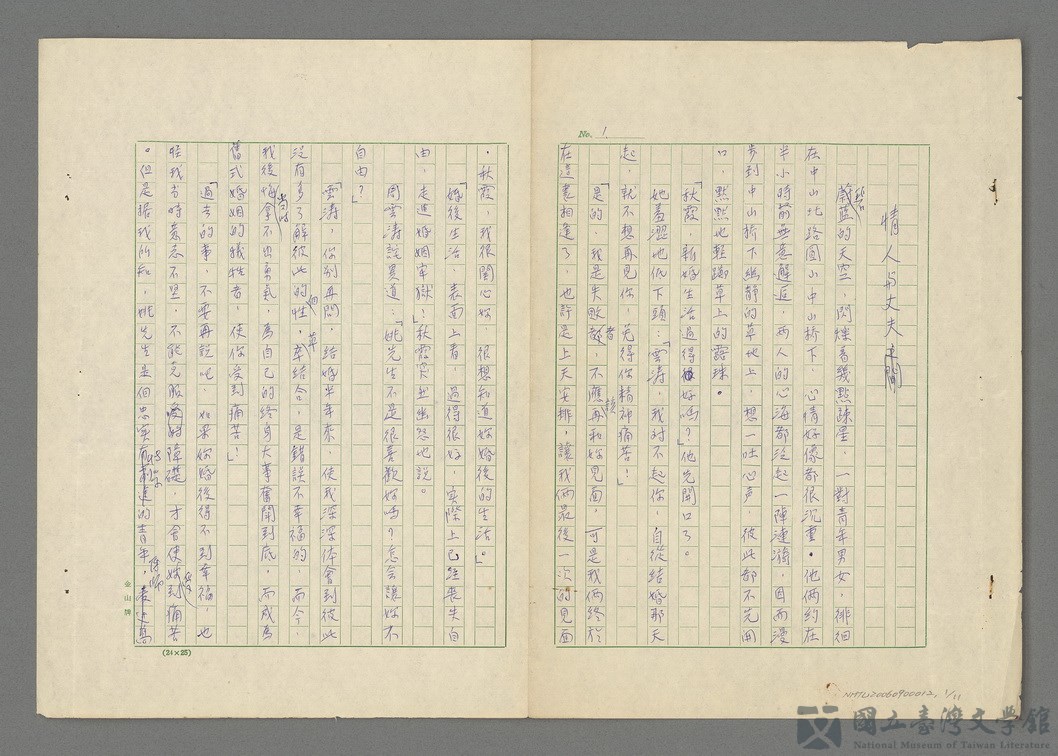 No. 1
情人与丈夫之間
蔚藍的天空，閃爍着幾點疎星，一對青年男女，徘徊
在中山北路圓山中山橋下，心情好像都很沉重。他倆約在
半小時前無意邂逅，兩人的心海都泛起一陣漣漪，因而漫
步到中山橋下幽靜的草地上，想一吐心声，彼此都不先開
口，默默地輕踢草上的露珠。
「秋霞，新婚生活過得好嗎？」他先開口了。
她羞澀地低下頭：「雲濤，我对不起你，自從結婚那天
起，就不想再見你，免得你精神痛苦！」
「是的，我是失敗者，不應該再和妳見面，可是我倆終於
在這裏相逢了，也許是上天安排，讓我倆最後一次的見面
。秋霞，我很関心妳，很想知道妳婚後的生活。」
「婚後生活，表面上看，過得很好，實際上已經喪失自
由，走進婚姻牢獄！」秋霞哭並幽怨地說。
周雲濤詫異道：「姚先生不是很喜歡妳嗎？怎会讓妳不
自由？」
「雲濤，你別再問，結婚半年來，使我深深体會到彼此
沒有多了解彼此的個性，草率結合，是錯誤不幸福的，而今，
我後悔當時拿不出勇氣，為自己的終身大事奮鬪到底，而成為
舊式婚姻的犧牲者，使你受到痛苦！」
「過去的事，不要再說吧，如果你婚後得不到幸福，也
怪我当時意志不堅，不能克服的障礙，才會使妳受到痛苦
。但是据我所知，姚先生是個忠實有的青年，
金山牌
(24×25)
NMTL20060900012, 1/11
國立臺灣文學館
National Museum of Taiwan Literature